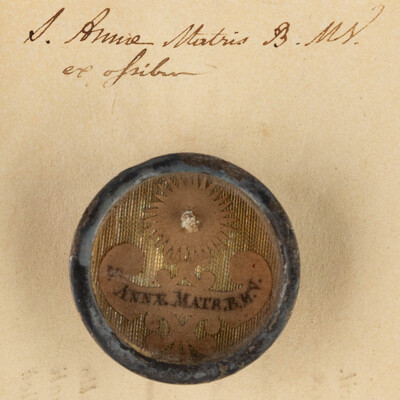 S. Annæ Matris B. M V.
ex ossibus
S. ANNÆ. MATR. B. M. V.